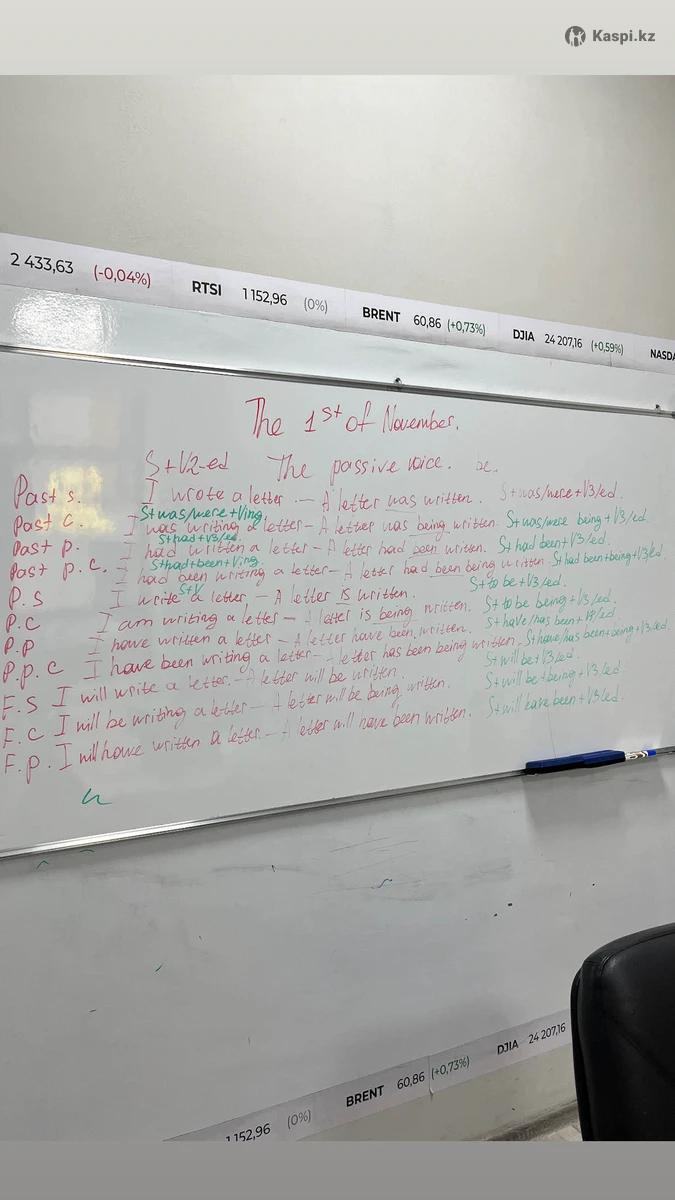 Kaspi.kz
2 433,63 (-0,04%) RTSI 1 152,96 (0%) BRENT 60,86 (+0,73%) DJIA 24 207,16 (+0,59%) NASDA
The 1st of November.
S+V2-ed The passive voice.
Past s. I wrote a letter. — A letter was written. S+was/were+V3/ed.
S+was/were+Ving.
Past c. I was writing a letter – A letter was being written. S+was/were being+V3/ed.
S+had+V3/ed.
Past p. I had written a letter – A letter had been written. S+had been+V3/ed.
S+had+been+Ving.
Past p.c. I had been writing a letter – A letter had been being written. S+had+been+being+V3/ed.
S+V
P.S I write a letter – A letter is written. S+to be+V3/ed.
P.C I am writing a letter – A letter is being written. S+to be being+V3/ed.
P.P I have written a letter – A letter have been written. S+have/has been+V3/ed.
P.p.c I have been writing a letter – A letter has been being written. S+have/has+been+being+V3/ed.
F.S I will write a letter. – A letter will be written. S+will be+V3/ed.
F.C I will be writing a letter – A letter will be being written. S+will be+being+V3/ed.
F.p. I will have written a letter. – A letter will have been written. S+will have been+V3/ed.
1 152,96 (0%) BRENT 60,86 (+0,73%) DJIA 24 207,16